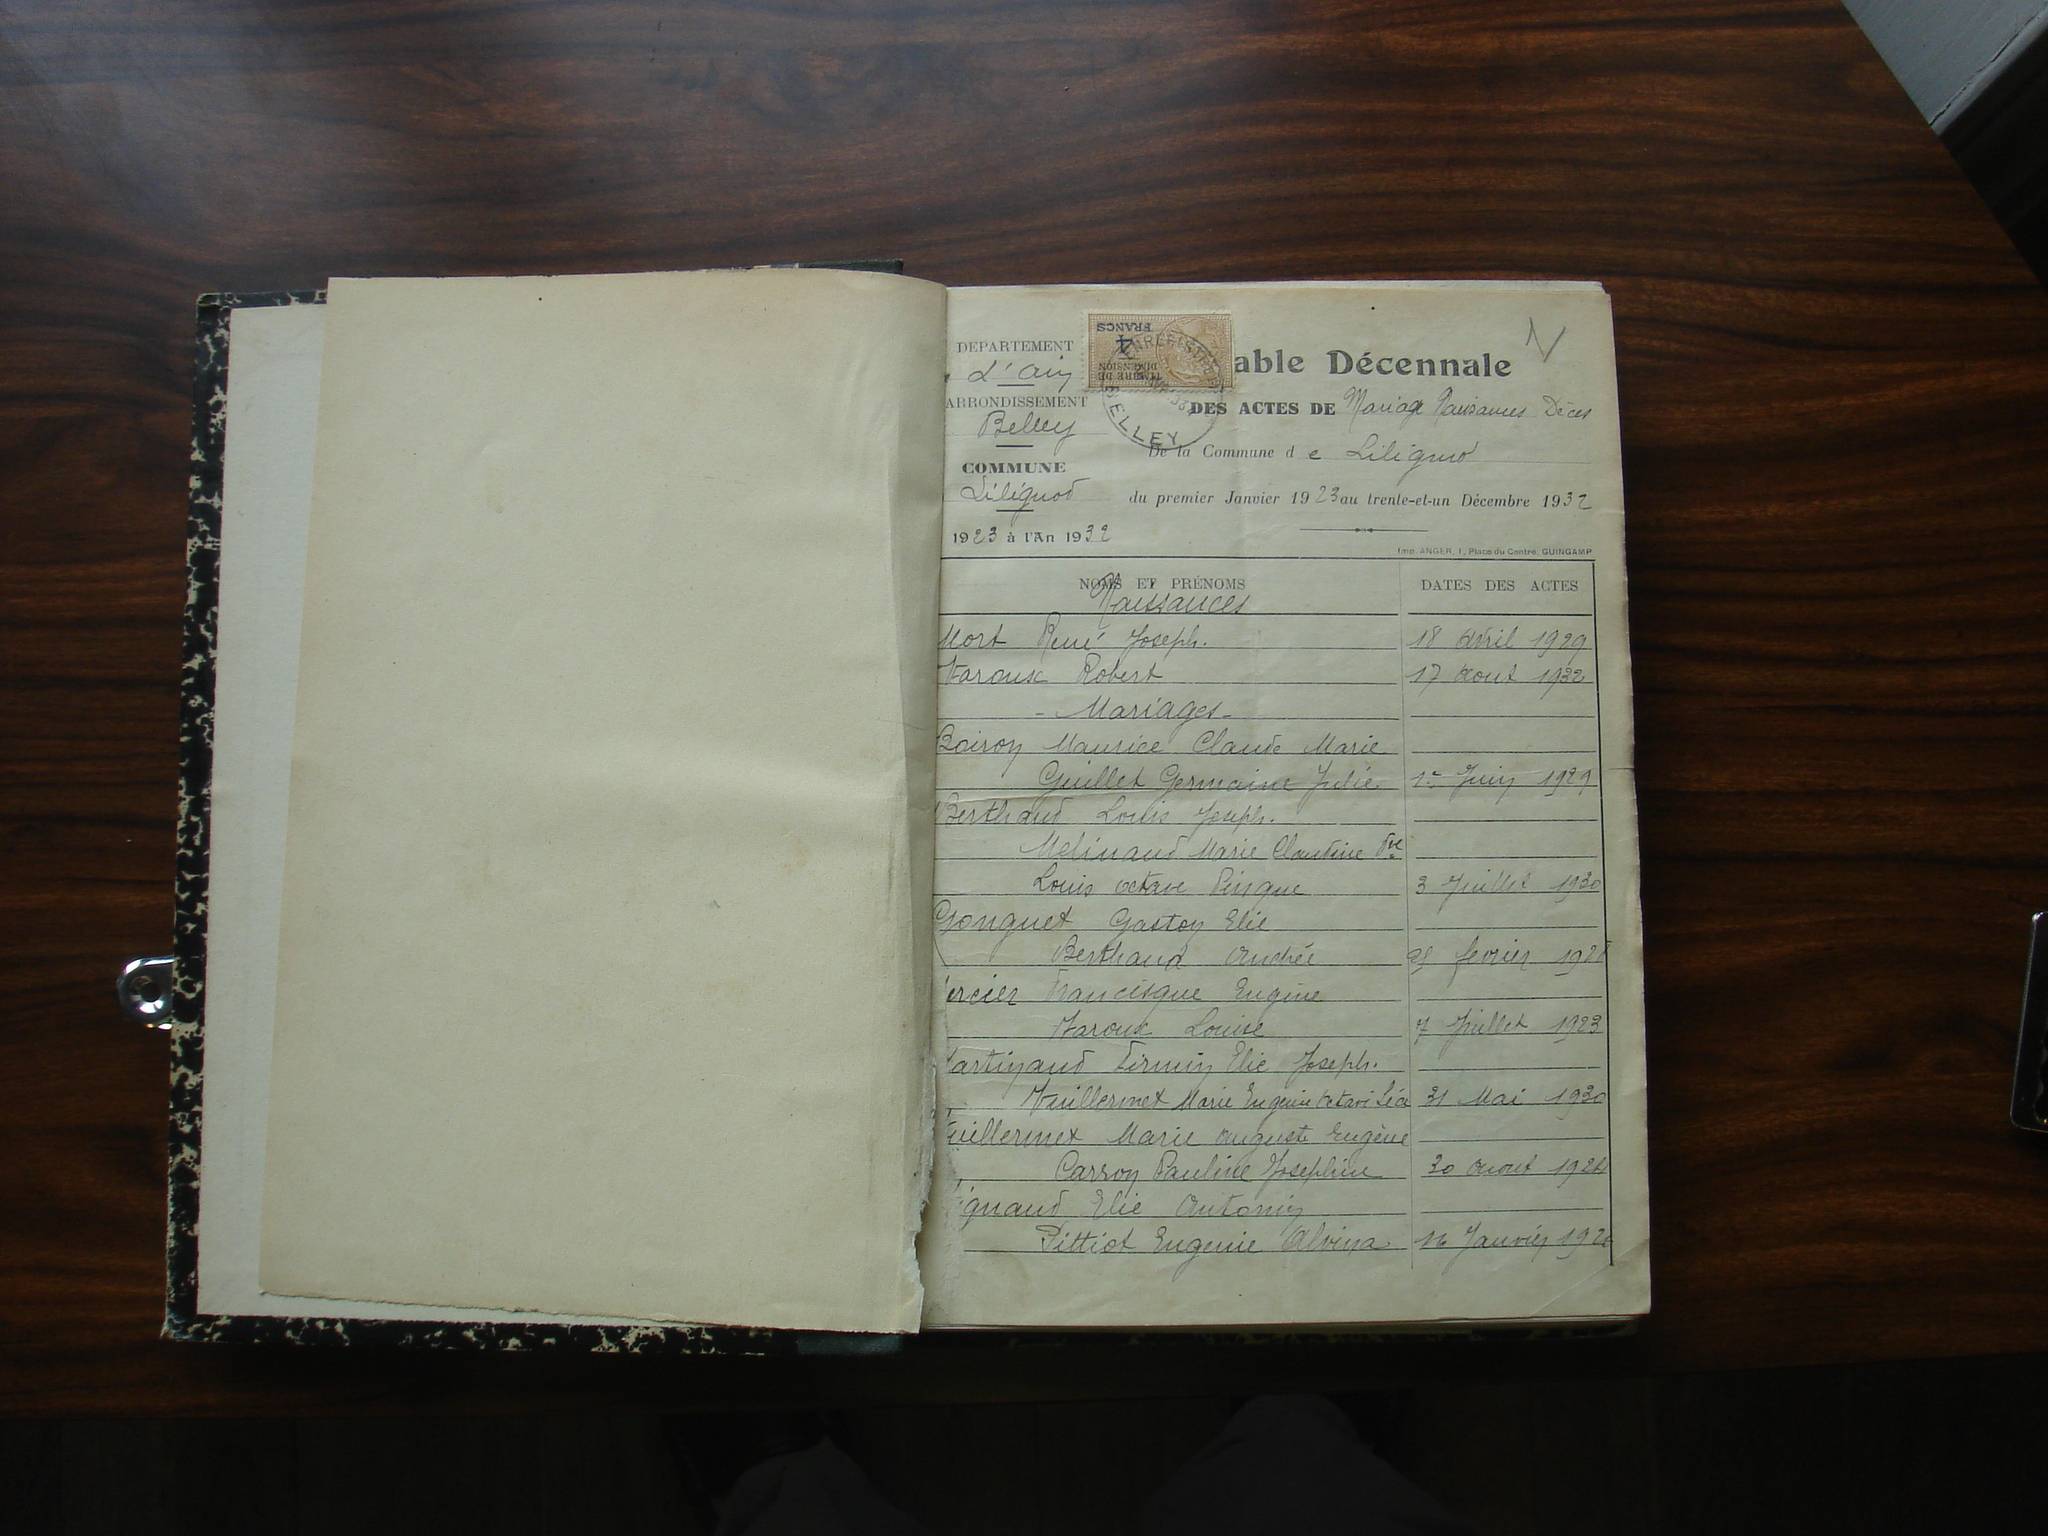 DEPARTEMENT
d'Ain
ARRONDISSEMENT
Belley
COMMUNE
Lilignod
1923 à l'An 1932
4 FRANCS
TIMBRE DE DIMENSION
BELLEY
able Décennale
DES ACTES DE Mariage Naissances Décès
De la Commune de Lilignod
du premier Janvier 1923 au trente-et-un Décembre 1932
Imp. ANGER, 1, Place du Centre, GUINGAMP
NOMS ET PRÉNOMS DATES DES ACTES
Naissances
Mort René Joseph. 18 avril 1929
Varoux Robert 17 aout 1932
- Mariages -
Boiron Maurice Claude Marie
Guillet Germaine Julie 1er Juin 1929
Berthaud Louis Joseph.
Melinaud Marie Claudine Vve
Louis octave Pingue 3 Juillet 1930
Gonguet Gaston Elie
Berthaud Andrée février
ercier Francisque Eugène
Varoux Louise 7 Juillet 1923
artinand Firmin Elie Joseph.
Vuillermet Marie Eugenie 31 Mai 1930
uillermet Marie auguste Eugène
Carron Pauline Josephine 30 aout 1924
ignaud Elie Antonin
Pittiot Eugenie Alvina 16 Janvier